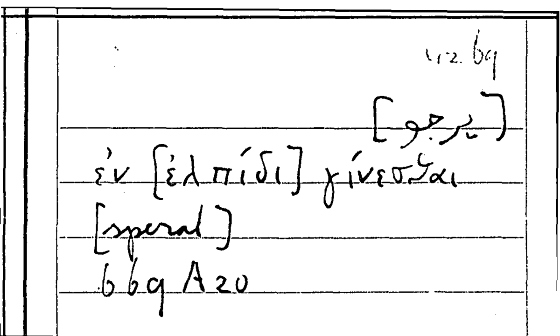 42. 6q
[يرجو]
ἐν [ἐλπίδι] γίνεσθαι
[sperat]
66q A20